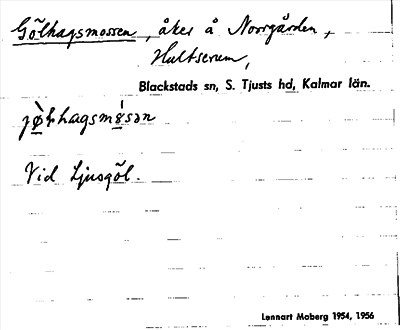 Gölhagsmossen, åker å Norrgården,
Hultserum,
Blackstads sn, S. Tjusts hd, Kalmar län.
Vid Ljusgöl.
Lennart Moberg 1954, 1956